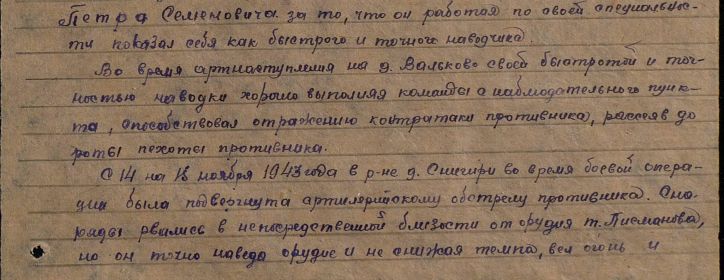 Петра Семеновича за то, что он работая по своей специальнос-
ти показал себя как быстрого и точного наводчика.
Во время артнаступления на д. Вальково своей быстротой и точ-
ностью наводки хорошо выполняя команды с наблюдательного пунк-
та, способствовал отражению контратаки противника, рассеяв до
роты пехоты противника.
С 14 на 15 ноября 1943 года в р-не д. Снигири во время боевой опера-
ции была подвергнута артилерийскому обстрелу противника. Сна-
ряды рвались в непосредственной близости от орудия т. Писманова,
но он точно наведя орудие и не снижая темпа, вел огонь и